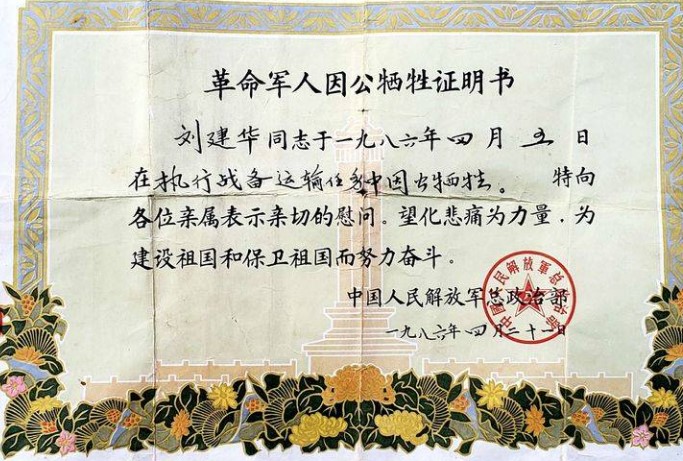 革命军人因公牺牲证明书
刘建华同志于一九八六年四月五日
在执行战备运输任务中因公牺牲。 特向
各位亲属表示亲切的慰问。望化悲痛为力量，为
建设祖国和保卫祖国而努力奋斗。
中国人民解放军总政治部
一九八六年四月二十一日
中國人民解放軍总政治部